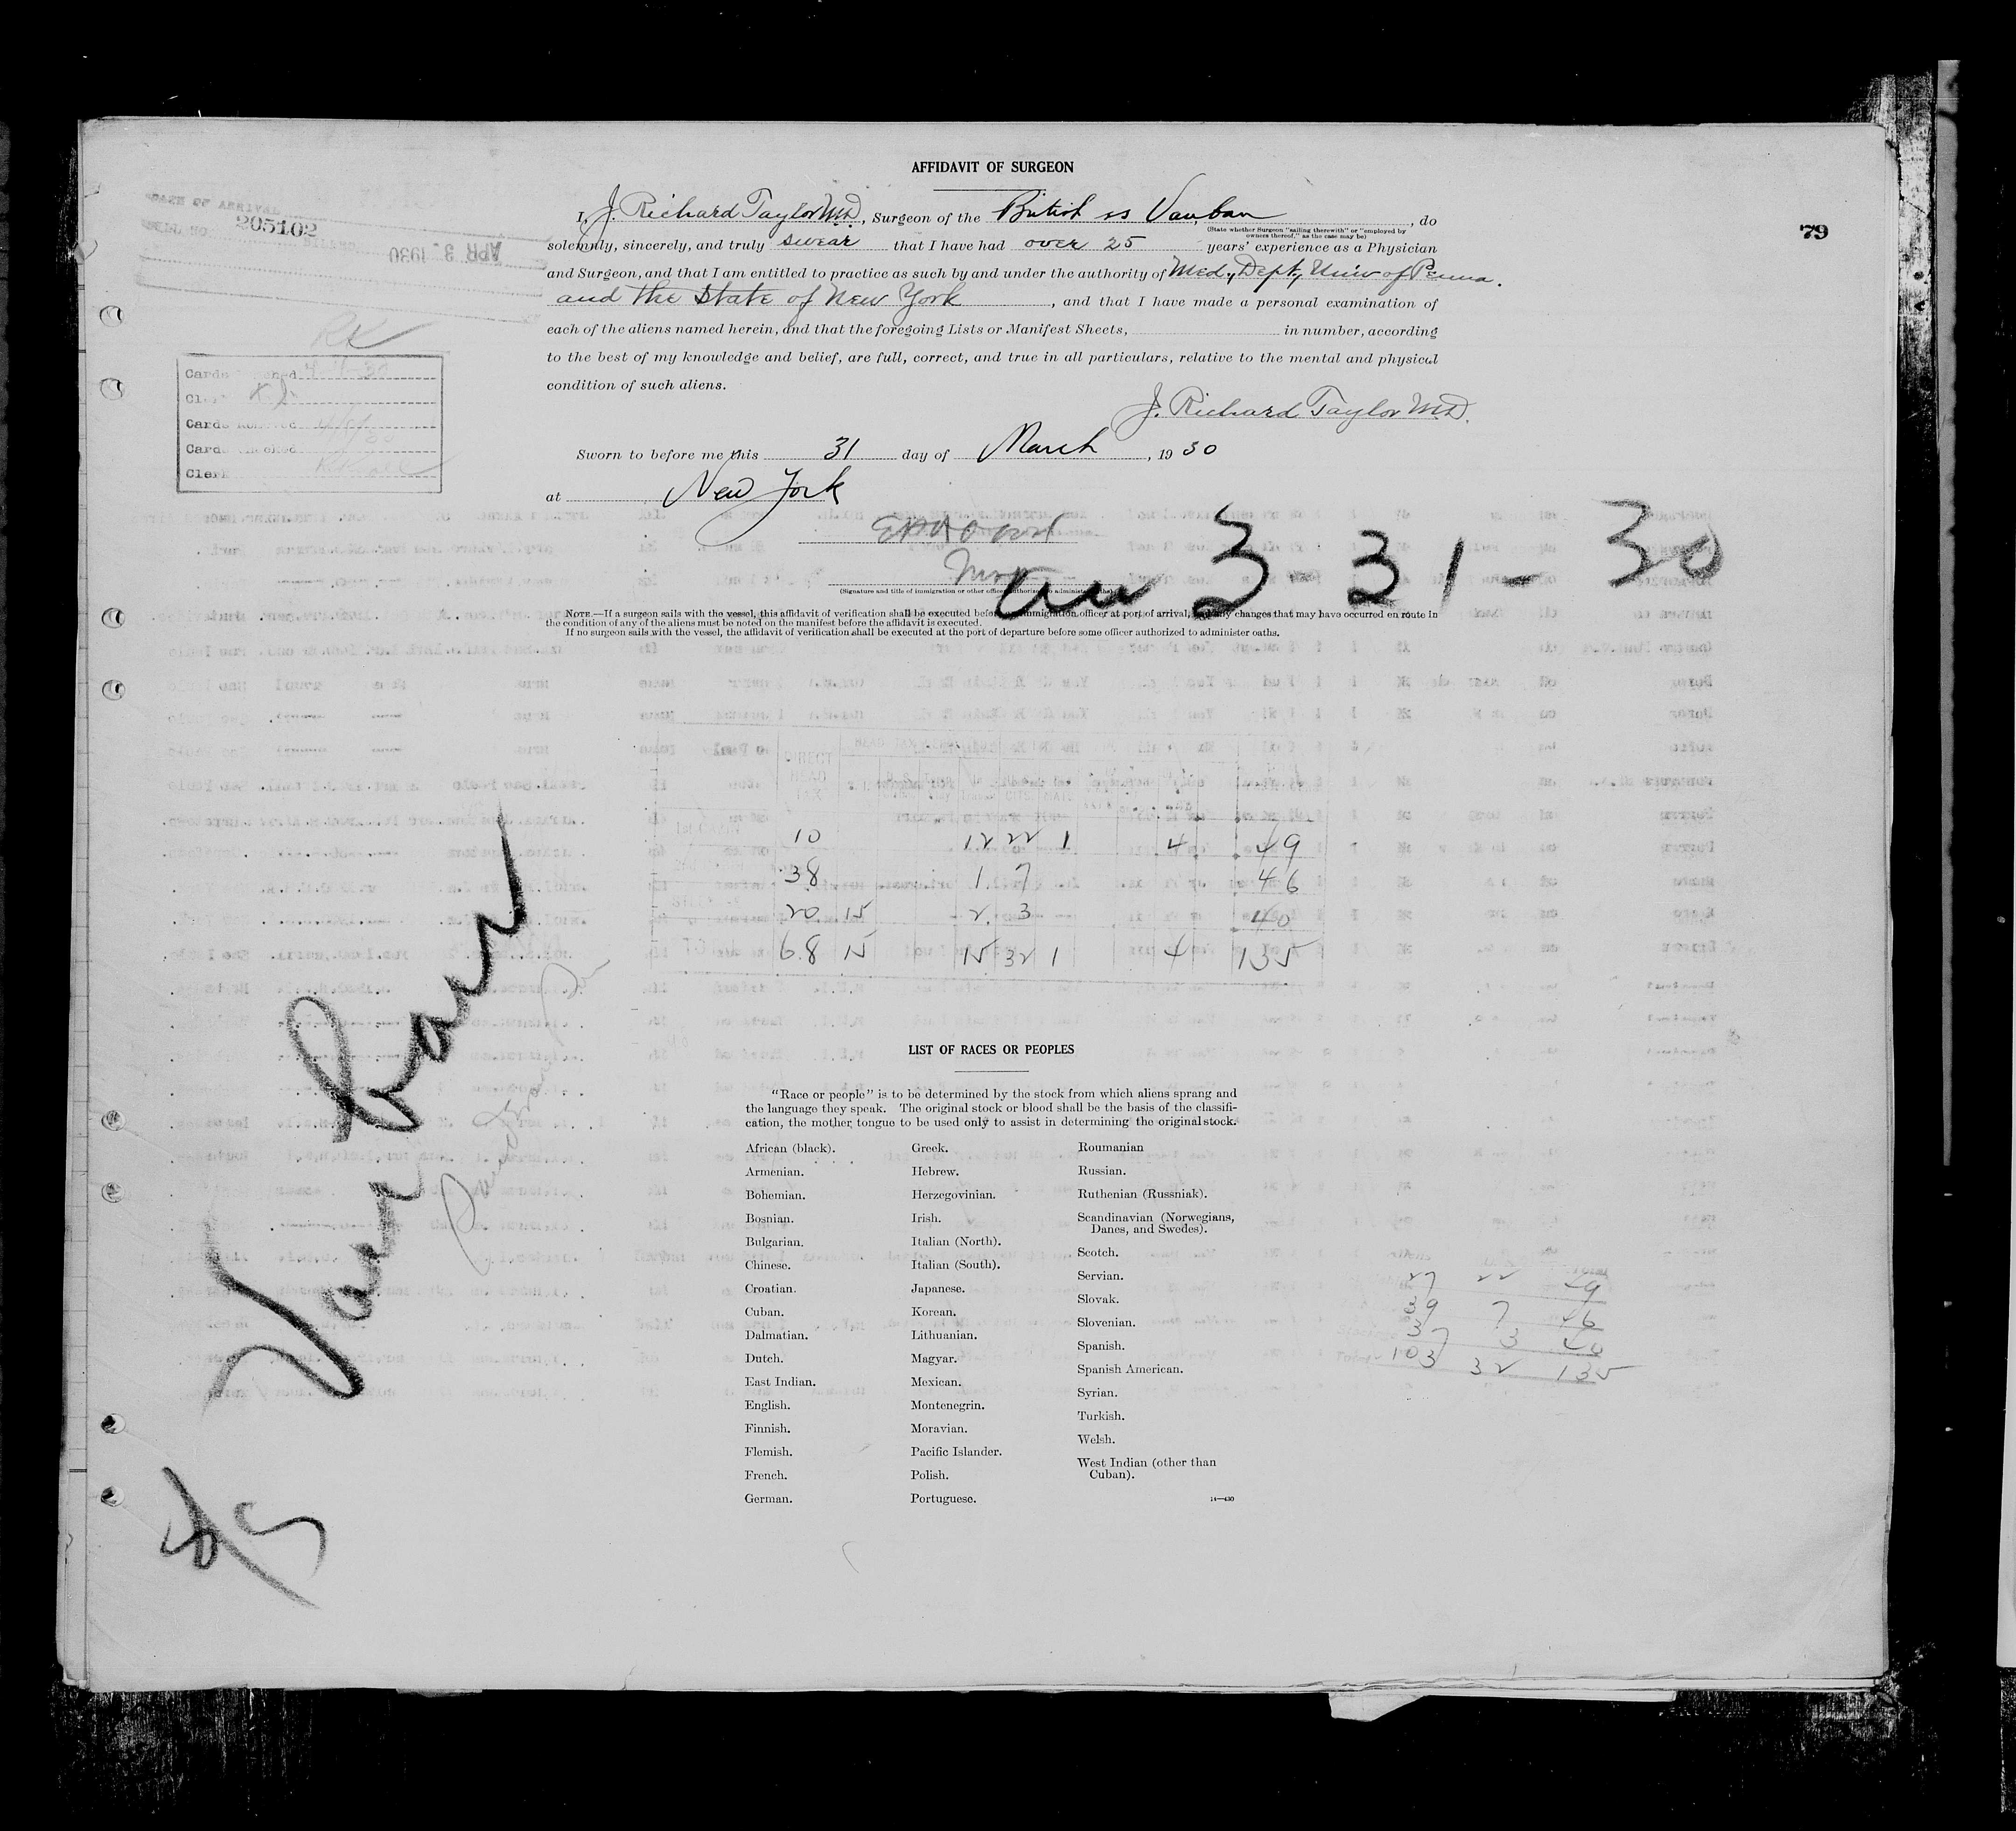 AFFIDAVIT OF SURGEON
79
I, J. Richard Taylor M.D., Surgeon of the British ss Vauban, do
(State whether Surgeon "sailing therewith" or "employed by
owners thereof," as the case may be)
solemnly, sincerely, and truly swear that I have had over 25 years' experience as a Physician
and Surgeon, and that I am entitled to practice as such by and under the authority of Med., Dept., Univ of Penna.
and the State of New York, and that I have made a personal examination of
each of the aliens named herein, and that the foregoing Lists or Manifest Sheets, in number, according
to the best of my knowledge and belief, are full, correct, and true in all particulars, relative to the mental and physical
condition of such aliens.
J. Richard Taylor M.D.
Sworn to before me this 31 day of March, 1930
at New York
3 31-30
(Signature and title of immigration or other officer authorized to administer oaths)
NOTE.—If a surgeon sails with the vessel, this affidavit of verification shall be executed before an immigration officer at port of arrival, and any changes that may have occurred en route in
the condition of any of the aliens must be noted on the manifest before the affidavit is executed.
If no surgeon sails with the vessel, the affidavit of verification shall be executed at the port of departure before some officer authorized to administer oaths.
205102
APR 3 1930
RK
Cards
Clerk
Cards
Cards
Clerk
DIRECT
HEAD
TAX
10 12 22 1 4 49
38 1 7 46
20 15 2 3 40
68 15 15 32 1 4 135
Vauban
LIST OF RACES OR PEOPLES
"Race or people" is to be determined by the stock from which aliens sprang and
the language they speak. The original stock or blood shall be the basis of the classifi-
cation, the mother tongue to be used only to assist in determining the original stock.
African (black).
Armenian.
Bohemian.
Bosnian.
Bulgarian.
Chinese.
Croatian.
Cuban.
Dalmatian.
Dutch.
East Indian.
English.
Finnish.
Flemish.
French.
German.
Greek.
Hebrew.
Herzegovinian.
Irish.
Italian (North).
Italian (South).
Japanese.
Korean.
Lithuanian.
Magyar.
Mexican.
Montenegrin.
Moravian.
Pacific Islander.
Polish.
Portuguese.
Roumanian
Russian.
Ruthenian (Russniak).
Scandinavian (Norwegians,
Danes, and Swedes).
Scotch.
Servian.
Slovak.
Slovenian.
Spanish.
Spanish American.
Syrian.
Turkish.
Welsh.
West Indian (other than
Cuban).
14—430
27 22 49
39 7 46
37 3 40
103 32 135